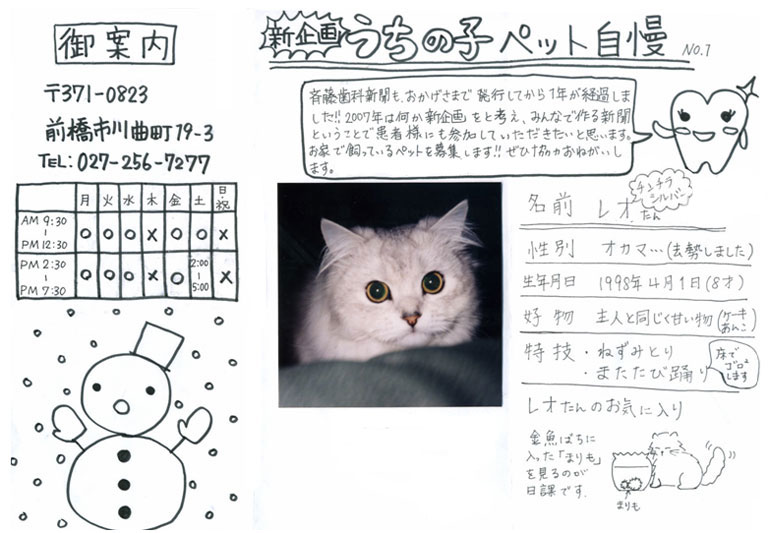 御案内
〒371-0823
前橋市川曲町19-3
TEL:027-256-7277
月 火 水 木 金 土 日祝
AM 9:30 - PM 12:30 ○ ○ ○ × ○ ○ ×
PM 2:30 - PM 7:30 ○ ○ ○ × ○ 2:00-5:00 ×
新企画 うちの子ペット自慢 NO.1
斉藤歯科新聞も、おかげさまで発行してから1年が経過しま
した!! 2007年は何か新企画をと考え、みんなで作る新聞
ということで患者様にも参加していただきたいと思います。
お家で飼っているペットを募集します!! ぜひ協力おねがいし
ます。
チンチラ
シルバー
名前 レオたん
性別 オカマ…(去勢しました)
生年月日 1998年4月1日(8才)
好物 主人と同じく甘い物(ケーキ あんこ)
特技・ねずみとり
・またたび踊り
床で
ゴロ²
します
レオたんのお気に入り
金魚ばちに
入った「まりも」
を見るのが
日課です.
まりも